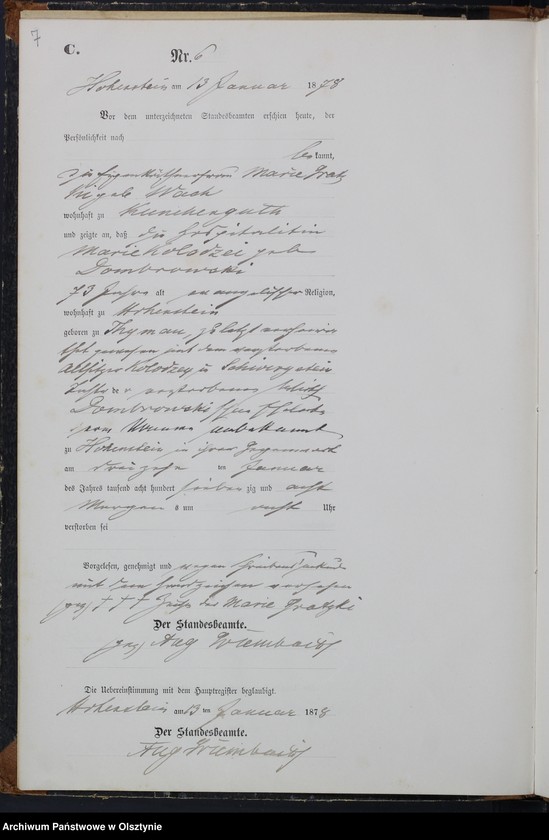 7
C.
Nr. 6
Hohenstein am 13 Januar 1878
Vor dem unterzeichneten Standesbeamten erschien heute, der
Persönlichkeit nach
be kannt,
die Marie
geb Wach
wohnhaft zu Kunchenguth
und zeigte an, daß die Hospitalitin
Marie Kolodzei geb
Dombrowski
73 Jahre alt evangelischer Religion,
wohnhaft zu Hohenstein
geboren zu Thymau, zuletzt verheira
thet gewesen mit dem verstorbenen
Altsitzer Kolodzey in
Tochter der verstorbenen
Dombrowski
Namen unbekannt
zu Hohenstein in ihrer Gegenwart
am dreizehn ten Januar
des Jahres tausend acht hundert sieben zig und acht
Morgens um acht Uhr
verstorben sei
Vorgelesen, genehmigt und wegen
mit dem Handzeichen versehen
gez +++ der Marie Gratzki
Der Standesbeamte.
gez Aug
Die Uebereinstimmung mit dem Hauptregister beglaubigt.
Hohenstein am 13 ten Januar 1878
Der Standesbeamte.
Aug
Archiwum Państwowe w Olsztynie